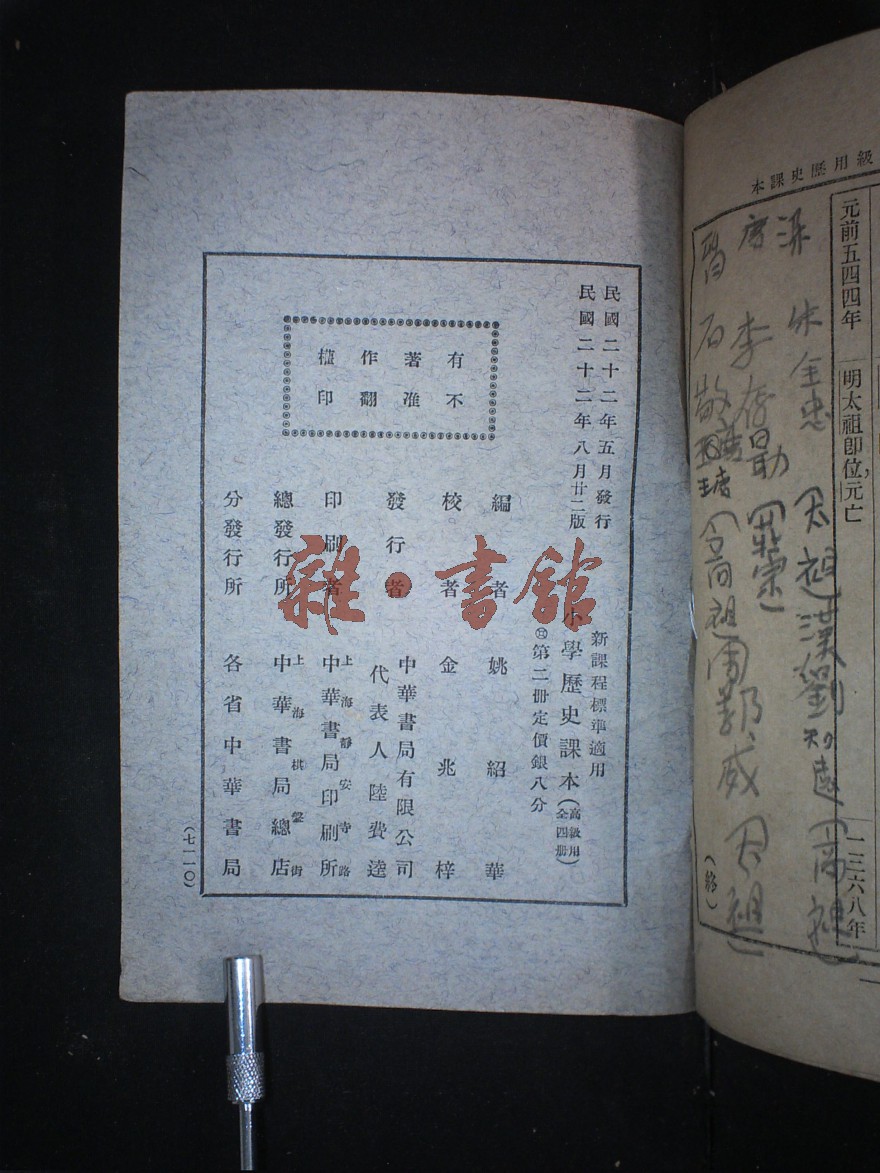 級用歷史課本
元前五四四年
明太祖即位,元亡
一三六八年
(終)
梁 朱全忠 (太祖)
唐 李存勗 (莊宗)
晉 石敬瑭 (高祖)
漢 劉知遠 (高祖)
周 郭威 (太祖)
民國二十二年五月發行
民國二十二年八月廿二版
有著作權
不准翻印
新課程標準適用
小學歷史課本(高級用全四冊)
第二冊定價銀八分
編者 姚紹華
校者 金兆梓
發行者 中華書局有限公司
代表人陸費逵
印刷者 上海靜安寺路
中華書局印刷所
總發行所 上海棋盤街
中華書局總店
分發行所 各省中華書局
(七一一〇)
雜·書館